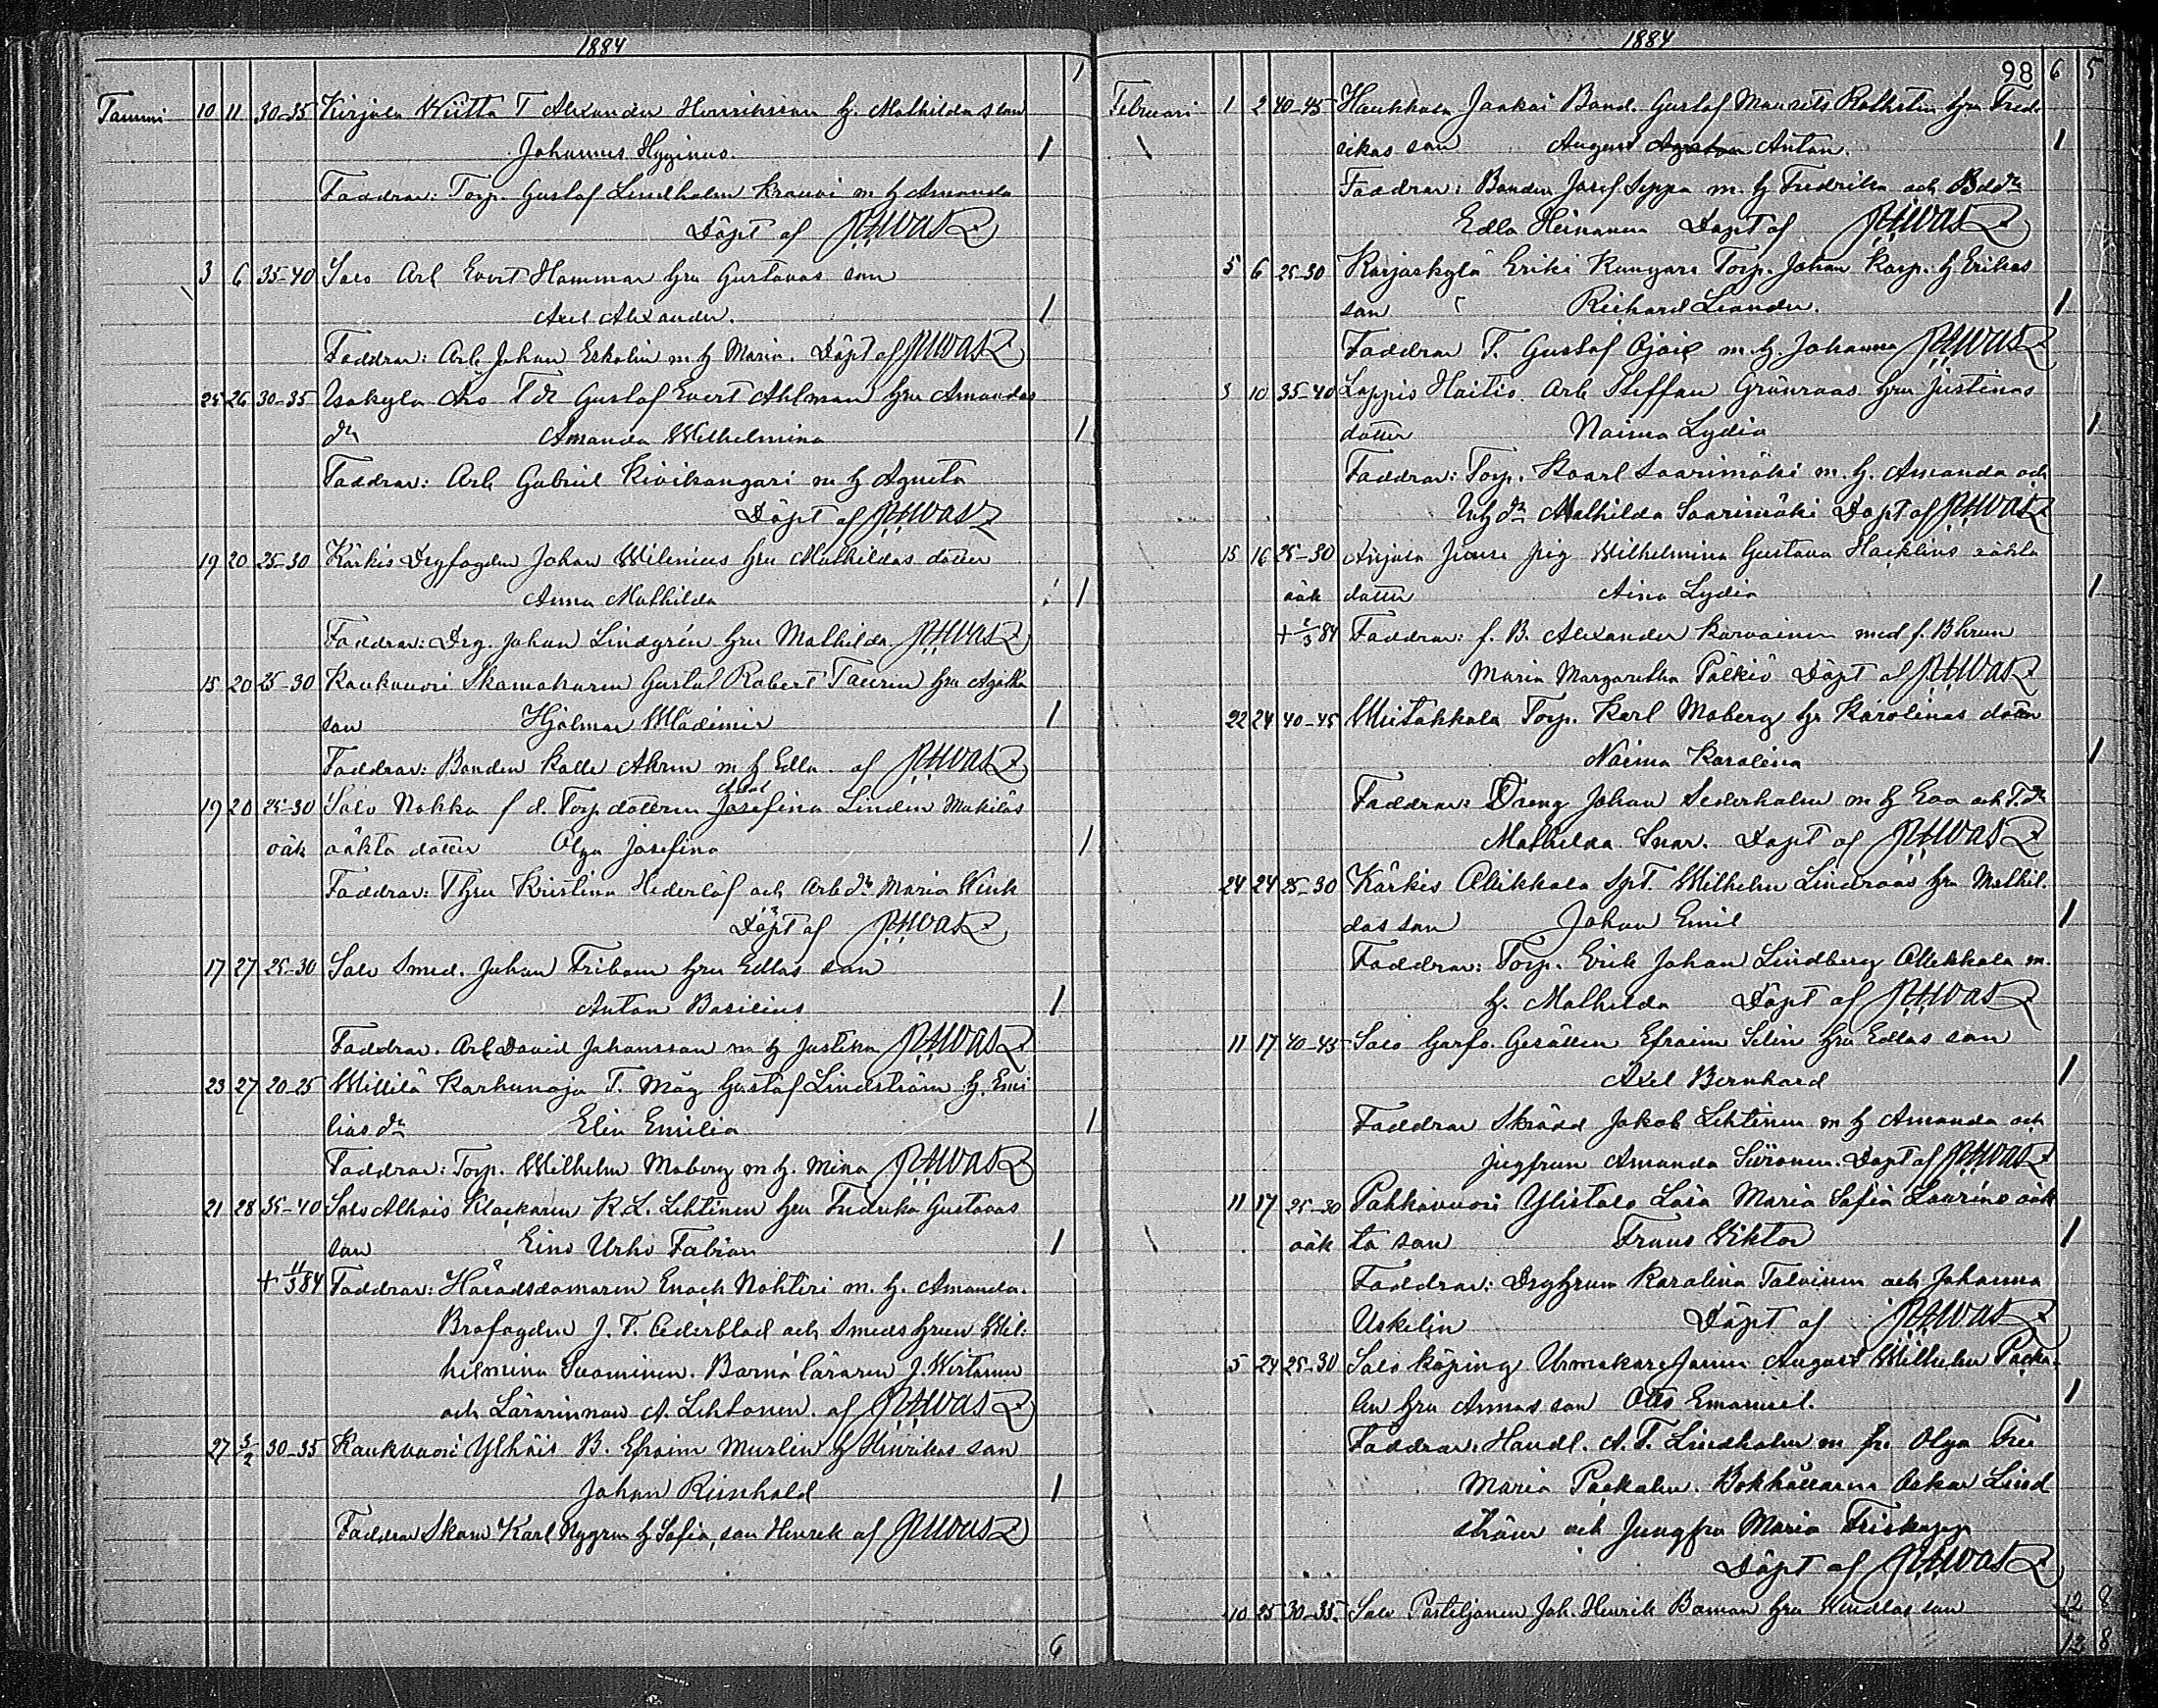 1884
1
Tammi 10 11 30-35 Kirjala Wiitta T Alexander Henriksson h. Mathildas son
Johannes Hyginus. 1
Faddrar: Torp. Gustaf Lindholm m h Amanda
Döpt af
3 6 35-40 Salo Arb Evert Hammar hru Gustavas son
Axel Alexander. 1
Faddrar: Arb. Johan Eskolin m h Maria. Döpt af
25 26 30-35 Isokylä Aro T Gustaf Evert Ahlman hru Amandas
dr Amanda Wilhelmina 1
Faddrar: Arb Gabriel Kivikangari m h Agneta
Döpt af
19 20 25-30 Kärkis Drgfogden Johan Wilenius hru Mathildas dotter
Anna Mathilda 1
Faddrar: Drg. Johan Lindgrén hru Mathilda.
15 20 25-30 Kaukvuori Skomakaren Gustaf Robert hru Agatha
son Hjalmar Wladimir 1
Faddrar: Bonden Kalle m h Edla. af
19 20 25-30 Salo Nokka f d. Torp dottern Josefina Linden
oäk oäkta dotter Olga Josefina 1
Faddrar: Thru Kristina Hederlöf och Arb dr Maria
Döpt af
17 27 25-30 Salo Smed. Johan Fribom hru Edlas son
Anton Basilius 1
Faddrar. Arb David Johansson m h Justina
23 27 20-25 Karhunoja T. Måg Gustaf Lindström h. Emi
lias dr Elin Emilia 1
Faddrar: Torp. Wilhelm Moberg m h. Mina
21 28 35-40 Salo Alhais Klockaren K. L. Lehtinen hru Fredrika Gustavas
son Eino Urho Fabian 1
+ 11/3 84 Faddrar: Häradsdomaren Enoch Nohteri m. h. Amanda.
Brofogden J. T. Cederblad och Smeds hrun Wil:
helmina Suominen. Barnaläraren J. Wirtanen
och Lärarinnan A. Lehtonen. af
27 3/2 30-35 Kaukvuori Ylhäis B. Efraim Murlin h Henrikas son
Johan Reinhold 1
Faddrar Skom Karl Nygren h Sofia, son Henrik af
6
1884
98 6 5
Februari 1 2 40-45 Haukkala Jaakoi Bond. Gustaf Maurits hru Fred
rikas son August Anton. 1
Faddrar: Bonden Josef Seppä m. h Fredrika och Bd dr
Edla Heinonen Döpt af
5 6 25-30 Karjaskylä Erikí Torp. Johan Karp. h Erikas
son Richard Leander. 1
Faddrar T. Gustaf Ojais m. h. Johanna
3 10 35-40 Lappis Haitis. Arb Steffan Grönroos hru Justinas
dotter Naima Lydia 1
Faddrar: Torp. Kaarl Saarimäki m. h. Amanda och
dr Mathilda Saarimäki Döpt af
15 16 25-30 Anjala pig Wilhelmina Gustava Hacklins oäkta
oäk dotter Aina Lydia 1
+ 84 Faddrar: f. B. Alexander Karvainen med f. Bhrun
Maria Margaretha Pälkiö Döpt af
22 24 40-45 Torp. Karl Moberg hr Karolinas dotter
Naima Karolina 1
Faddrar: Dreng Johan Sederholm m h Eva och T. dr
Mathilda Snar. Döpt af
24 24 25-30 Kärkis Ollikkala Spt. Wilhelm Lindroos hru Mathil-
das son Johan Emil 1
Faddrar: Torp. Erik Johan Lindberg Ollikkala m.
h. Mathilda Döpt af
11 17 40-45 Salo Garfv. Gesällen Efraim Selin hru Edlas son
Axel Bernhard 1
Faddrar Skrädd Jakob Lehtinen m h Amanda och
jugfrun Amanda Siironen. Döpt af
11 17 25-30 Pahkavuori Ylistalo Lösa Maria Sofia Lauréns oäk
oäk ta son Frans Viktor 1
Faddrar: Drghrun Karolina Talvinen och Johanna
Uskelin Döpt af
5 24 25-30 Salo köping Urmakare August Wilhelm Packa-
len hru Annas son Otto Emanuel. 1
Faddrar: Handl. A. T. Lindholm m fru Olga Fru
Maria Packalen. Bokhållaren Oskar Lind
ström och Jungfru Maria
Döpt af
10 25 30-35 Salo Postiljonen Joh. Henrik Boman hru Wendlas son 12 8
12 8